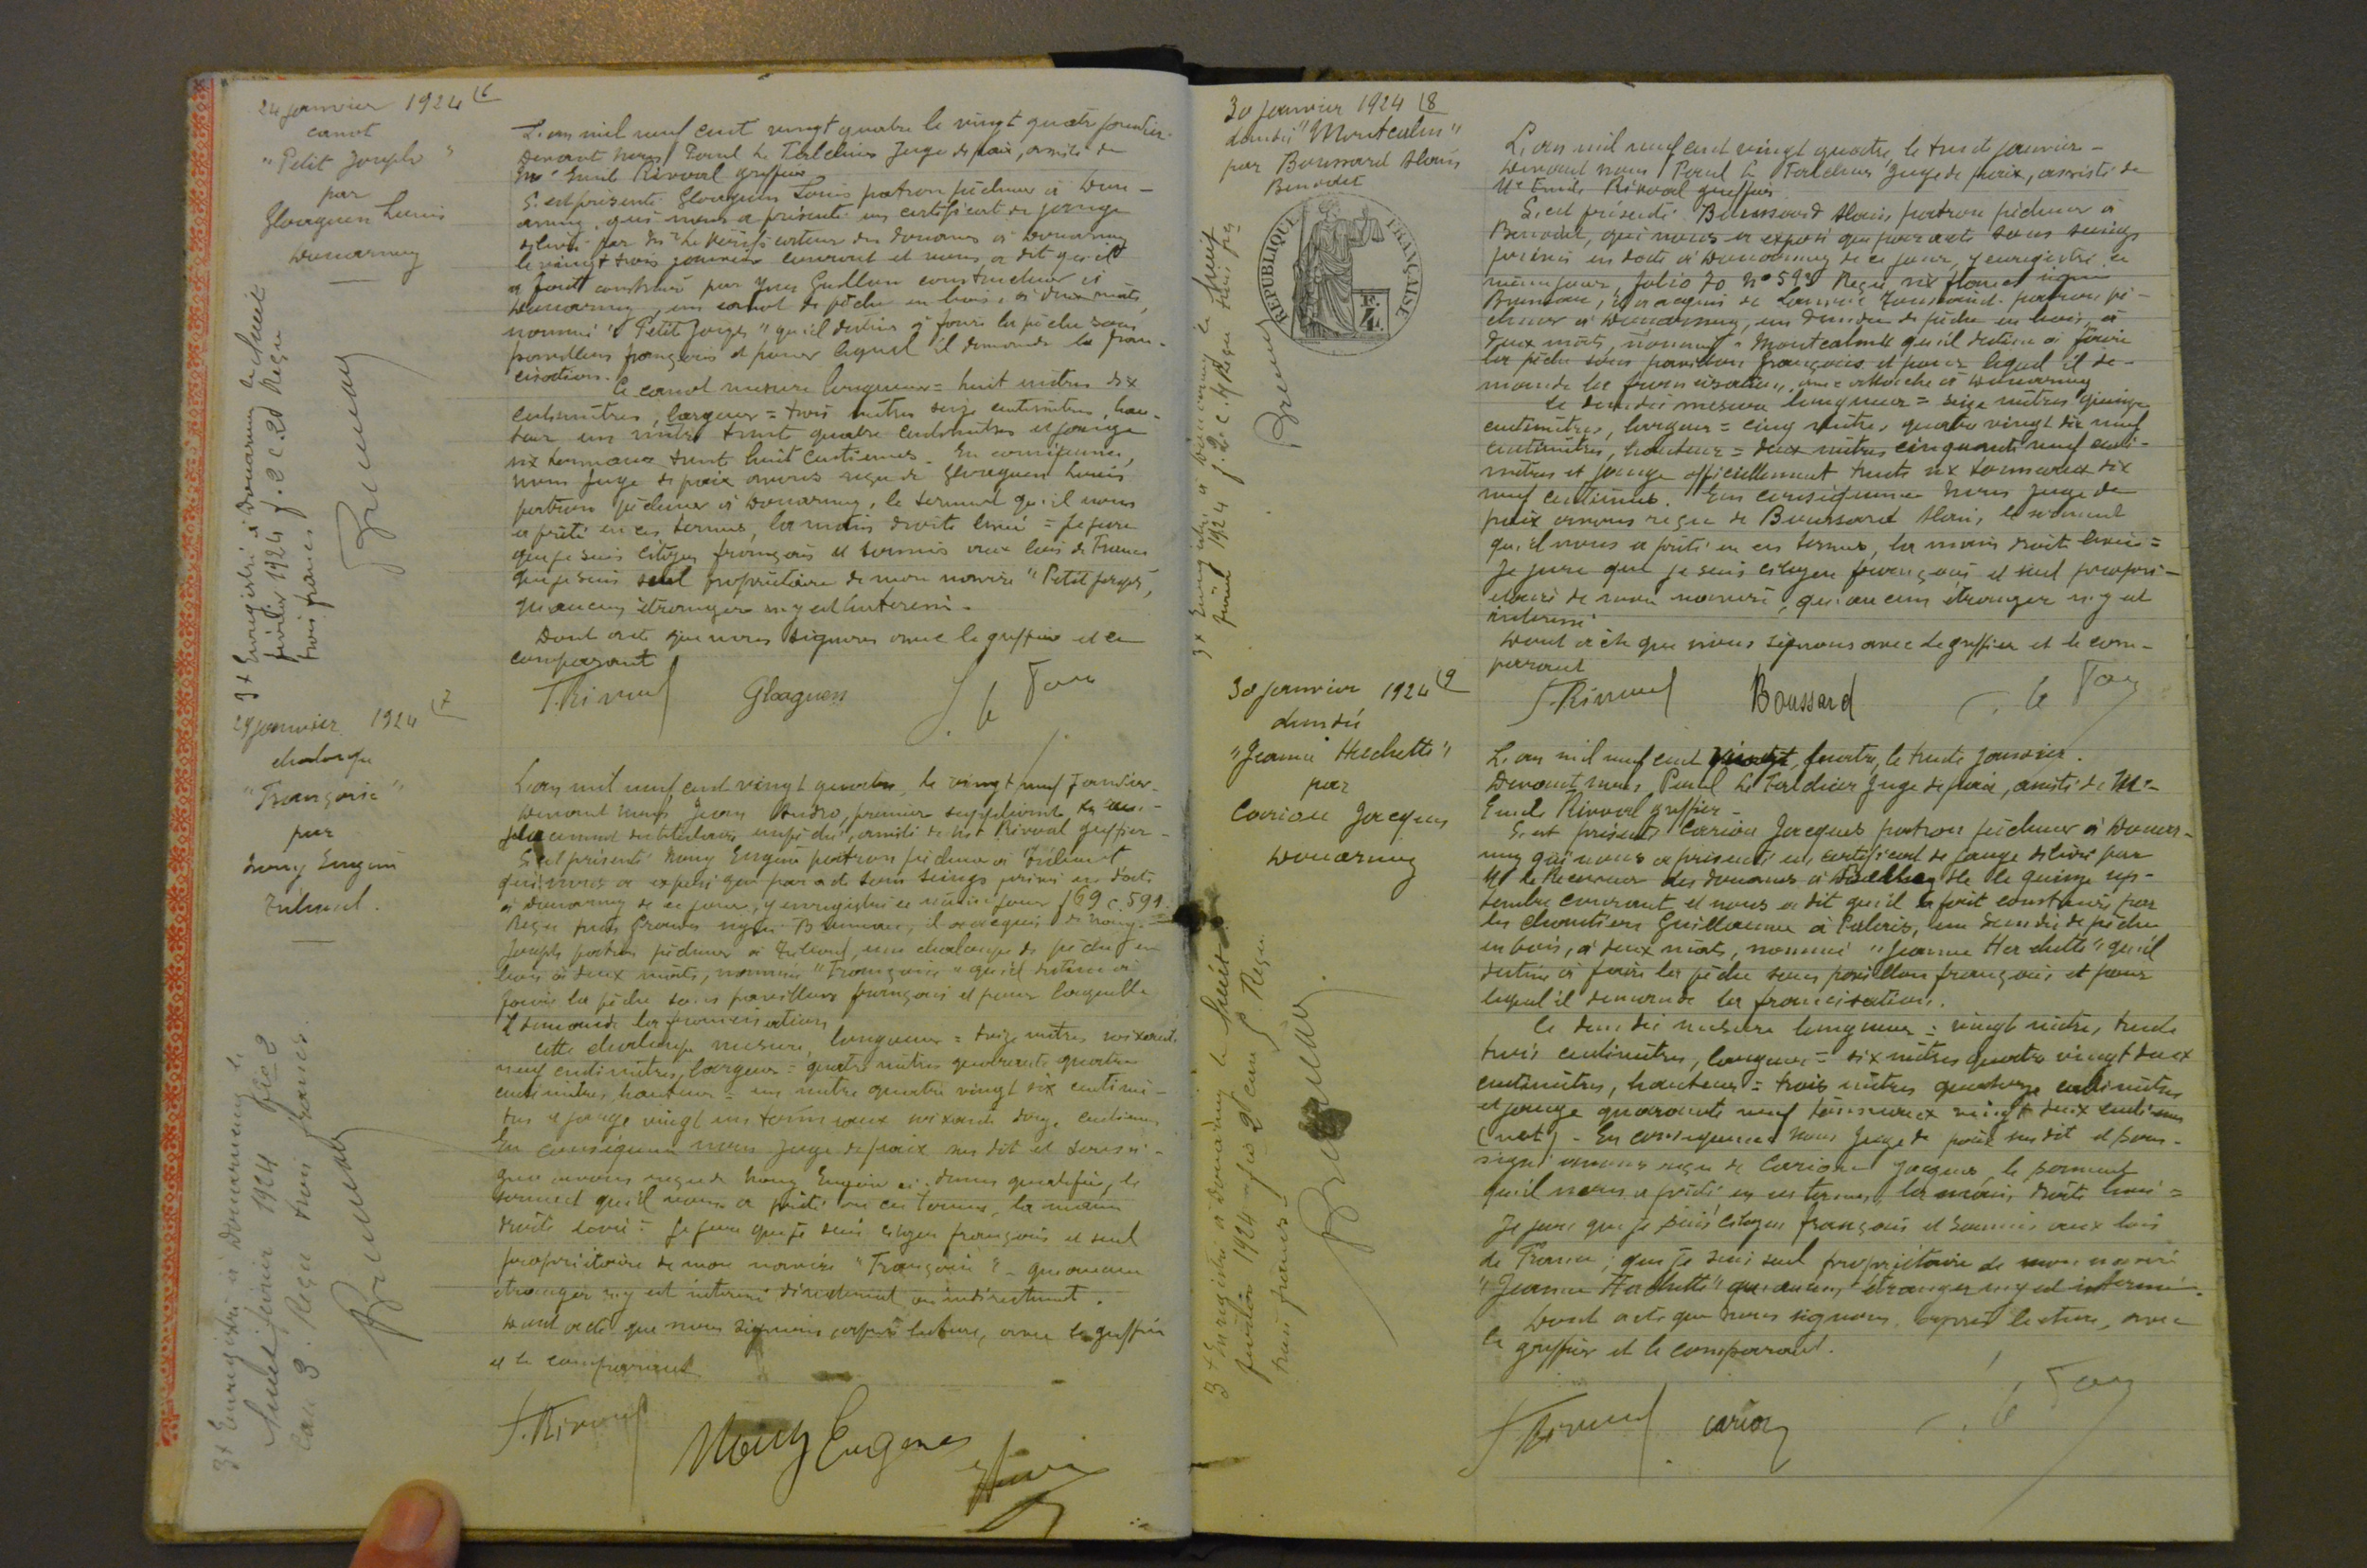 24 janvier 1924 6
canot
"Petit Joseph"
par
Gloaguen Louis
Douarnenez
3f Enregistré à Douarnenez le huit
février 1924 f. 2 c. 2d Reçu
trois francs
L'an mil neuf cent vingt quatre le vingt quatre janvier
Devant nous Paul Le Juge de paix, assisté de
Me Emile Rivoal greffier
S'est présenté Gloaguen Louis patron pêcheur à Douar-
nenez, qui nous a présenté un certificat de jauge
délivré par Mr Le Vérificateur des douanes à Douarnenez
le vingt trois janvier courant et nous a dit qu'il
a fait construire par Yves Guillou constructeur à
Douarnenez, un canot de pêche en bois, à deux mâts,
nommé "Petit Jorges" qu'il destine à faire la pêche sous
pavillon français et pour lequel il demande la fran-
cisation.
Ce canot mesure longueur = huit mètres dix
centimètres, largeur = trois mètres seize centimètres, hau-
teur un mètre trente quatre centimètres et jauge
six tonneaux trente huit centièmes. En conséquence,
nous Juge de paix avons reçu de Gloaguen Louis
patron pêcheur à Douarnenez, le serment qu'il nous
a prêté en ces termes, la main droite levée = Je jure
que je suis citoyen français et soumis aux lois de France
que je suis seul propriétaire de mon navire "Petit Jorges",
qu'aucun étranger n'y est intéressé.
Dont acte que nous signons avec le greffier et le
comparant
Rivoal Gloaguen
29 janvier 1924 7
chaloupe
"Françoise"
par
Eugène
Tréboul.
3f Enregistré à Douarnenez le
huit février 1924 fio 2
Case 3. Reçu trois francs.
L'an mil neuf cent vingt quatre, le vingt neuf janvier
Devant nous Jean Andro, premier suppléant en rem-
placement du titulaire empêché, assisté de Me Rivoal greffier
S'est présenté Eugène patron pêcheur à Tréboul
qui nous a exposé que par acte sous seings privés en date
à Douarnenez de ce jour, y enregistré ce même jour f 69 c. 591
Reçu trois francs signé Bruneau, il a acquis de
Joseph patron pêcheur à Tréboul, une chaloupe de pêche en
bois à deux mâts, nommée "Françoise" qu'il destine à
faire la pêche sous pavillon français et pour laquelle
il demande la francisation
Cette chaloupe mesure, longueur = treize mètres soixante
neuf centimètres, largeur = quatre mètres quarante quatre
centimètres, hauteur = un mètre quatre vingt six centimè-
tres et jauge vingt un tonneaux soixante douze centièmes
En conséquence nous Juge de paix sus dit et soussi-
gné avons reçu de Eugène ci-dessus qualifié, le
serment qu'il nous a prêté en ces termes, la main
droite levée = Je jure que je suis citoyen français et seul
propriétaire de mon navire "Françoise" – qu'aucun
étranger n'y est intéressé directement ou indirectement.
Dont acte que nous signons après lecture, avec le greffier
et le comparant
Rivoal Eugène
30 janvier 1924 8
dundée "Montcalm"
par Boussard Alain
Bénodet
REPUBLIQUE FRANÇAISE
3f Enregistré à Douarnenez le huit
février 1924 f. 2 c. 4 Reçu trois frs
L'an mil neuf cent vingt quatre, le trente janvier -
Devant nous Paul Le Juge de paix, assisté de
Me Emile Rivoal greffier
S'est présenté Boussard Alain, patron pêcheur à
Bénodet, qui nous a exposé que par acte sous seings
privés en date à Douarnenez de ce jour, y enregistré ce
même jour, folio 70 No 593 Reçu six francs signé
Bruneau, il a acquis de Toussaint patron pê-
cheur à Douarnenez, un dundée de pêche en bois, à
deux mâts, nommé "Montcalm" qu'il destine à faire
la pêche sous pavillon français et pour lequel il de-
mande la francisation, avec attache à Douarnenez
Ce dundée mesure longueur = seize mètres quinze
centimètres, largeur = cinq mètres quatre vingt dix neuf
centimètres, hauteur = deux mètres cinquante neuf centi-
mètres et jauge officiellement trente six tonneaux dix
neuf centièmes. En conséquence Nous Juge de
paix avons reçu de Boussard Alain, le serment
qu'il nous a prêté en ces termes, la main droite levée =
Je jure que je suis citoyen français et seul proprié-
taire de mon navire, qu'aucun étranger n'y est
intéressé.
Dont acte que nous signons avec le greffier et le com-
parant
Rivoal Boussard
30 janvier 1924 9
dundée
"Jeanne Hachette"
par
Cariou Jacques
Douarnenez
3f Enregistré à Douarnenez le huit
février 1924 fio 2 case 5 Reçu
trois francs
L'an mil neuf cent vingt quatre, le trente janvier.
Devant nous Paul Le Juge de paix, assisté de Me
Emile Rivoal greffier -
S'est présenté Cariou Jacques patron pêcheur à Douar-
nenez qui nous a présenté un certificat de jauge délivré par
Mr le Receveur des douanes à le quinze sep-
tembre courant et nous a dit qu'il a fait construire par
les chantiers Guillaume à un dundée de pêche
en bois, à deux mâts, nommé "Jeanne Hachette" qu'il
destine à faire la pêche sous pavillon français et pour
lequel il demande la francisation.
Ce dundée mesure longueur = vingt mètres, trente
trois centimètres, largeur = six mètres quatre vingt deux
centimètres, hauteur = trois mètres quatorze centimètres
et jauge quarante neuf tonneaux vingt deux centièmes
(net) - En conséquence nous Juge de paix sus dit et sous-
signé avons reçu de Cariou Jacques le serment
qu'il nous a prêté en ces termes, la main droite levée =
Je jure que je suis citoyen français et soumis aux lois
de France; que je suis seul propriétaire de mon navire
"Jeanne Hachette" qu'aucun étranger n'y est intéressé.
Dont acte que nous signons, après lecture, avec
le greffier et le comparant.
Rivoal Cariou